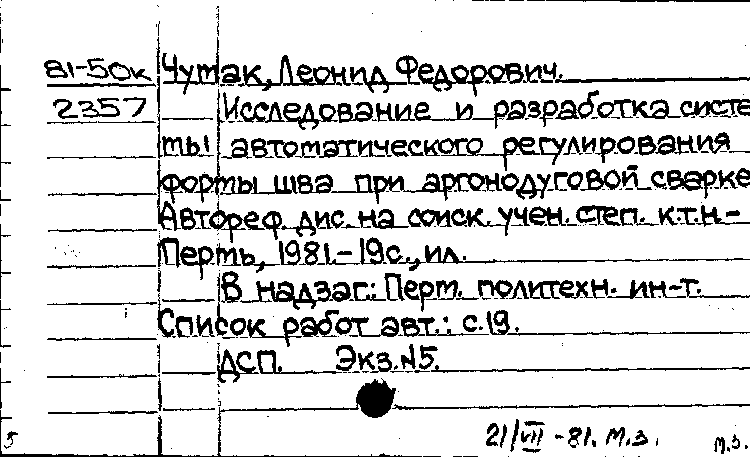 81-50к Чумак, Леонид Федорович.
2357 Исследование и разработка систе
мы автоматического регулирования
формы шва при аргонодуговой сварке
Автореф. дис. на соиск. учен. степ. к.т.н.-
Пермь, 1981.-19с., ил.
В надзаг.: Перм. политехн. ин-т.
Список работ авт.: с.19.
ДСП. Экз.N5.
21/VII-81. М.З. м.з.
5